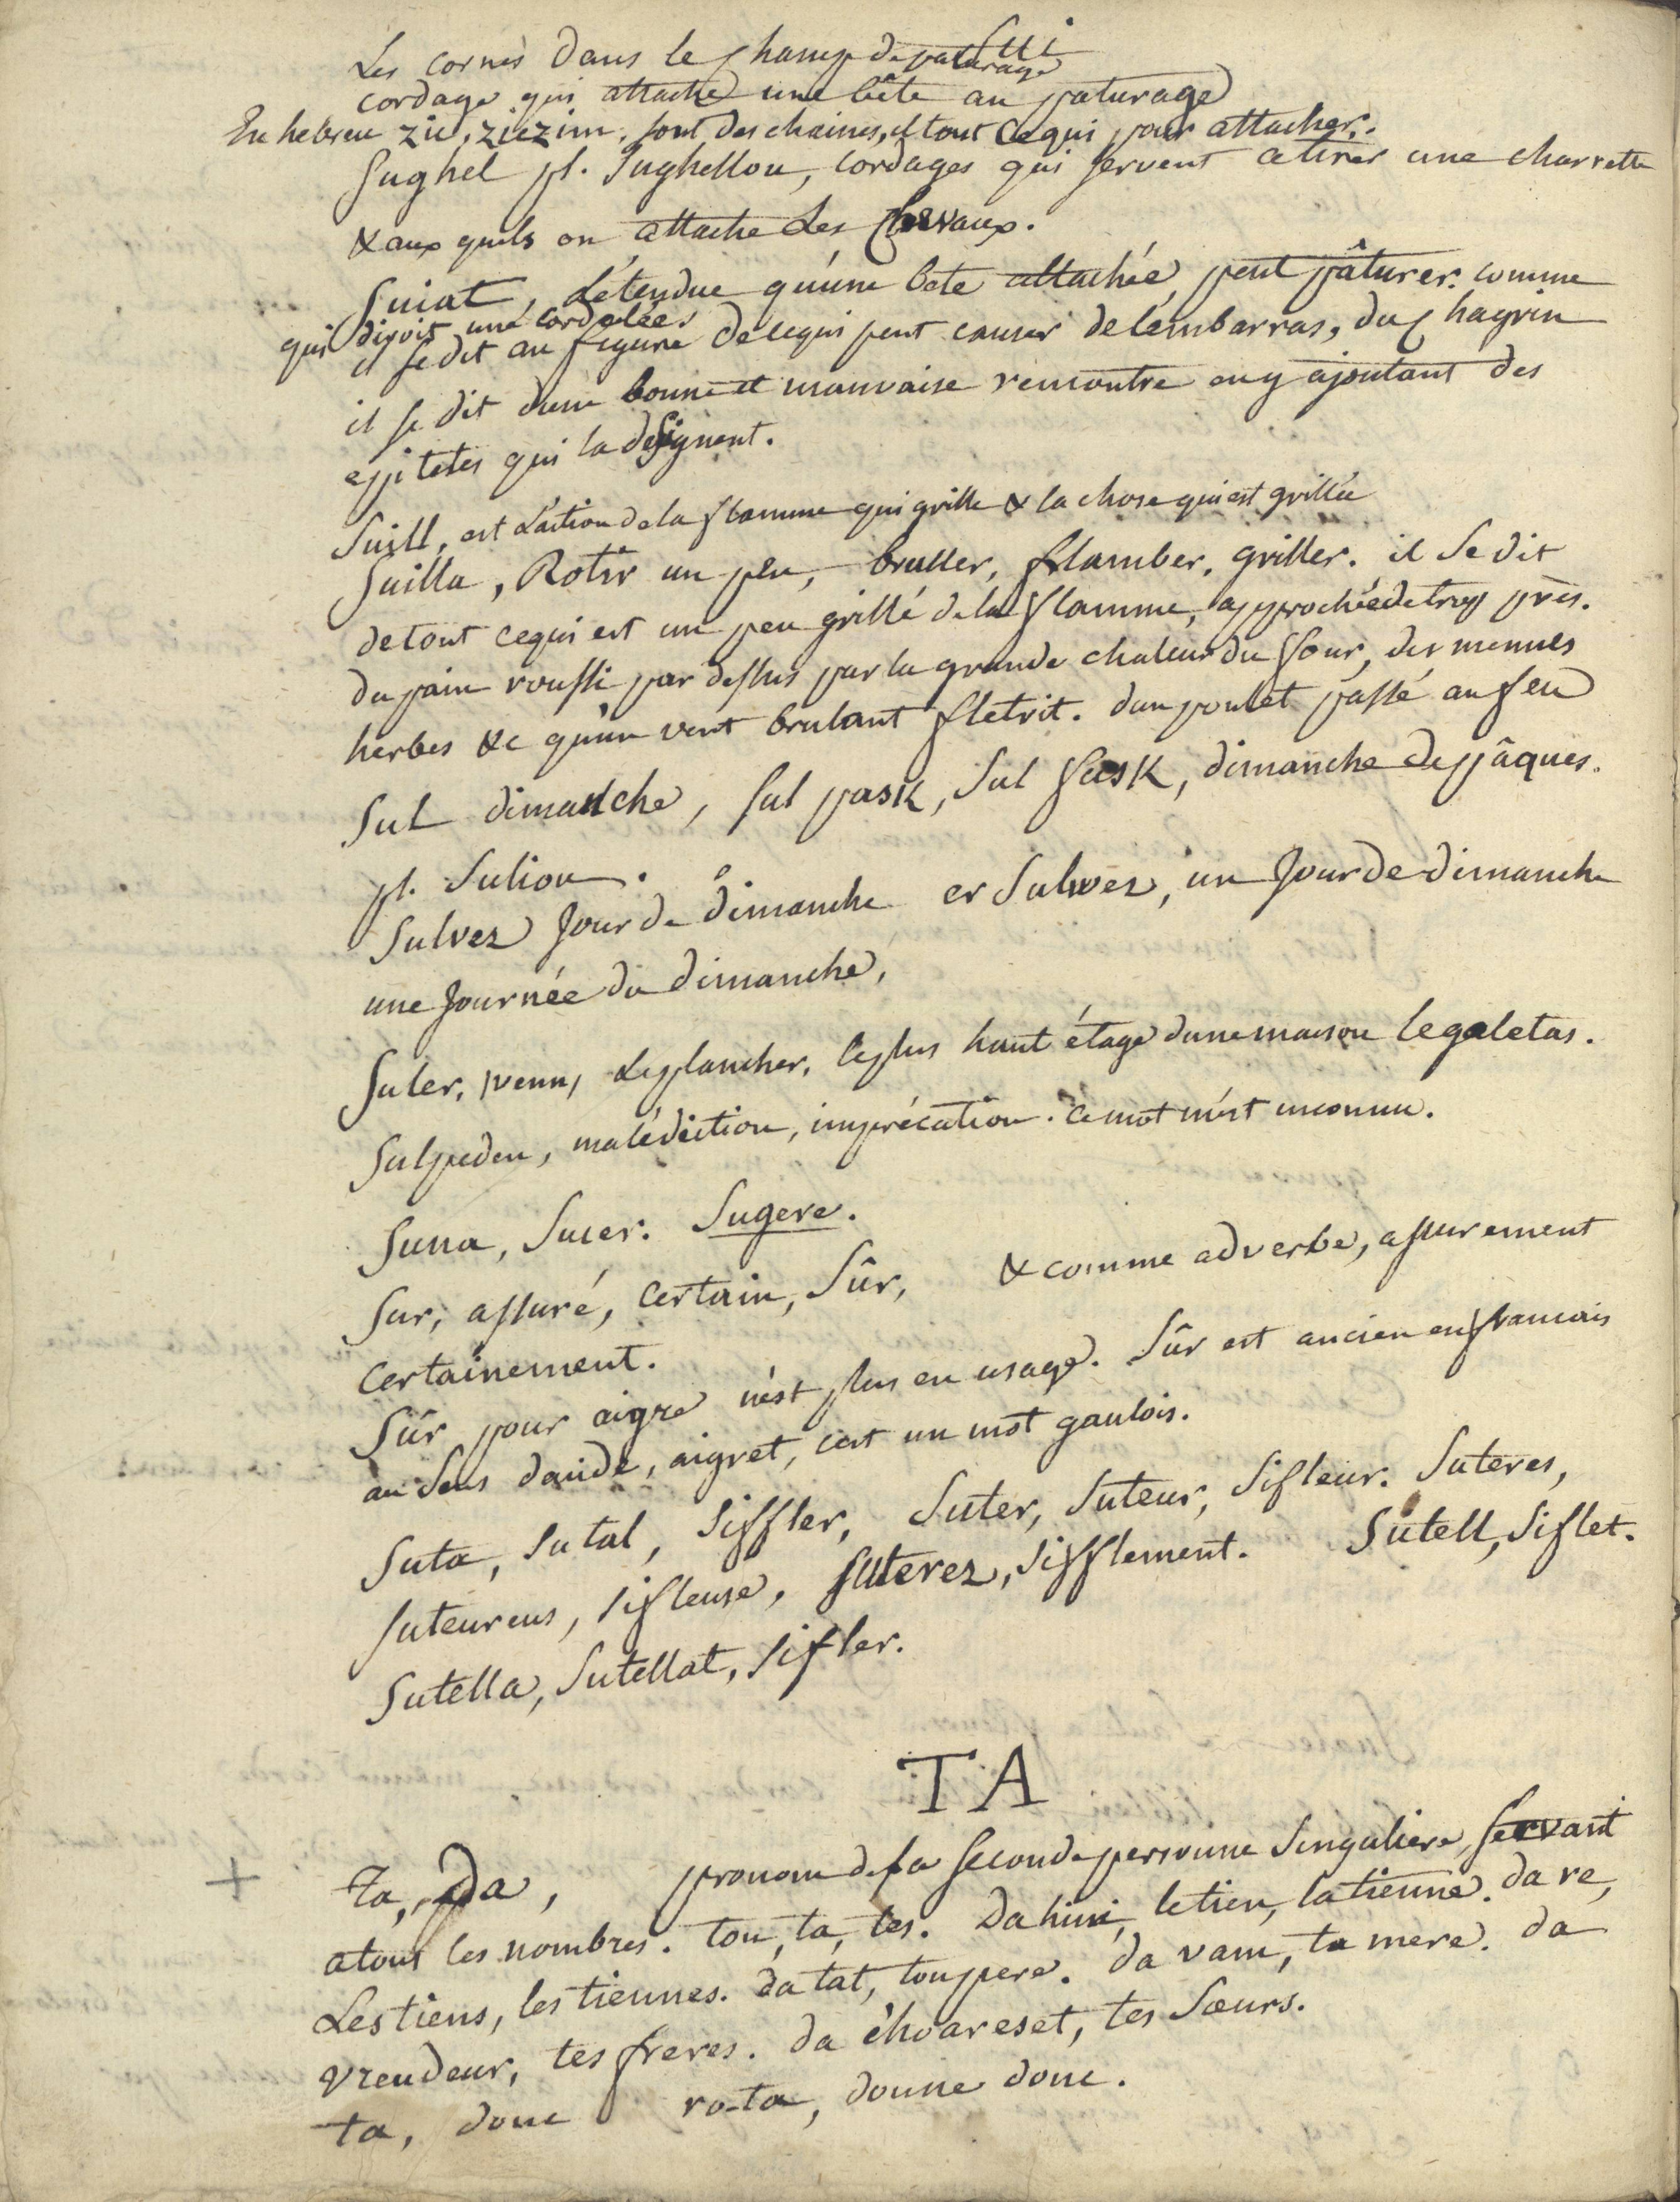 Sui
Les cornes dans le champ de paturage
cordage qui attache une bête au paturage
En hebreu zic, ziczim, sont des chaines, et tout ce qui pour attacher.
Sughel pl. Sughellou, cordages qui servent a tirer une charrette
& aux quels on attache les chevaux.
Suiat, L'étendue qu'une bete attachée peut pâturer. comme
qui diroit une cordelée.
il se dit au figuré de ce qui peut causer de l'embarras, du chagrin
il se dit d'une bonne et mauvaise rencontre en y ajoutant des
epitetes qui la designent.
Suill, est L'action de la flamme qui grille & la chose qui est grillée
Suilla, Rotir un peu, bruller, flamber, griller. il se dit
de tout ce qui est un peu grillé de la flamme, approchée de trop près.
du pain roussi par dessus par la grande chaleur du four, des menues
herbes &c qu'un vent brulant fletrit. d'un poulet passé au feu
Sul dimanche, Sul pask, Sul fask, dimanche de pâques.
pl. Suliou.
Sulvez Jour de dimanche er Sulvez, un Jour de dimanche
une Journée du dimanche,
Suler, venn, Le plancher, le plus haut étage d'une maison le galetas.
Sulpeden, malédiction, imprécation. ce mot m'est inconnu.
Suna, Sucer. Sugere.
Sur, assuré, certain, Sûr, & comme adverbe, assurement
certainement.
Sûr pour aigre n'est plus en usage. Sûr est ancien en francais
au Sens d'acide, aigret, c'est un mot gaulois.
Suta, Sutal, Siffler, Suter, Suteur, Sifleur. Suteres,
Suteureus, Sifleuse, Suterez, Sifflement. Sutell, Siflet.
Sutella, Sutellat, Sifler.
TA
+ Ta, Da, pronom de la Seconde personne Singuliere, Servant
a tous les nombres. ton, ta, tes. Da hini, le tien, la tienne. da re,
Les tiens, les tiennes. da tat, ton pere. da vam, ta mere. da
vreudeur, tes freres. da c'hoareset, tes Sœurs.
ta, donc ro-ta, donne donc.